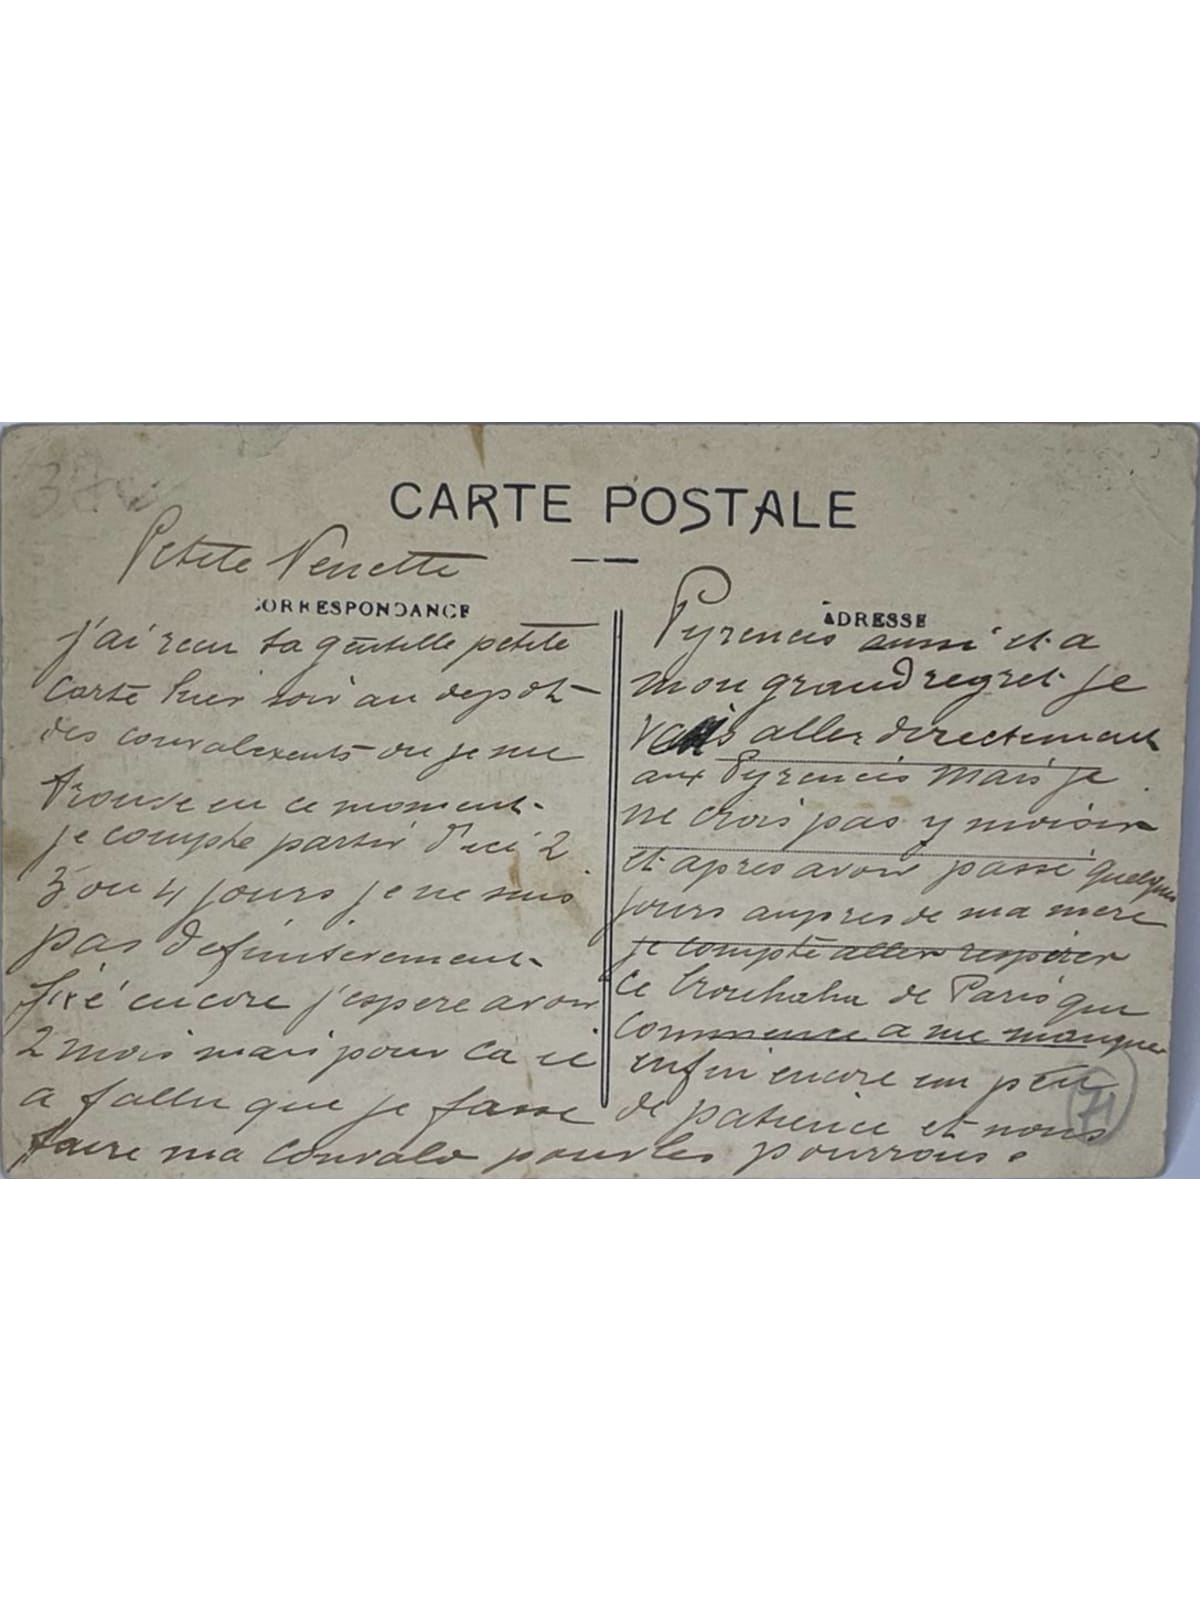 CARTE POSTALE
Petite Nenette
CORRESPONDANCE
j'ai recu ta gentille petite
carte hier soir au depot
des convalexents ou je me
trouve en ce moment
je compte partir d'ici 2
3 ou 4 jours je ne suis
pas definitivement
fixé encore j'espere avoir
2 mois mais pour ca il
a fallu que je fasse
faire ma convalo pour les
ADRESSE
Pyreneis aussi et a
mon grand regret je
vais aller directement
aux Pyreneis mais je
ne crois pas y moisir
et apres avoir passé quelques
jours aupres de ma mere
je compte aller respirer
ce brouhaha de Paris qui
commence a me manquer
enfin encore un peu
de patience et nous
pourrons.
71